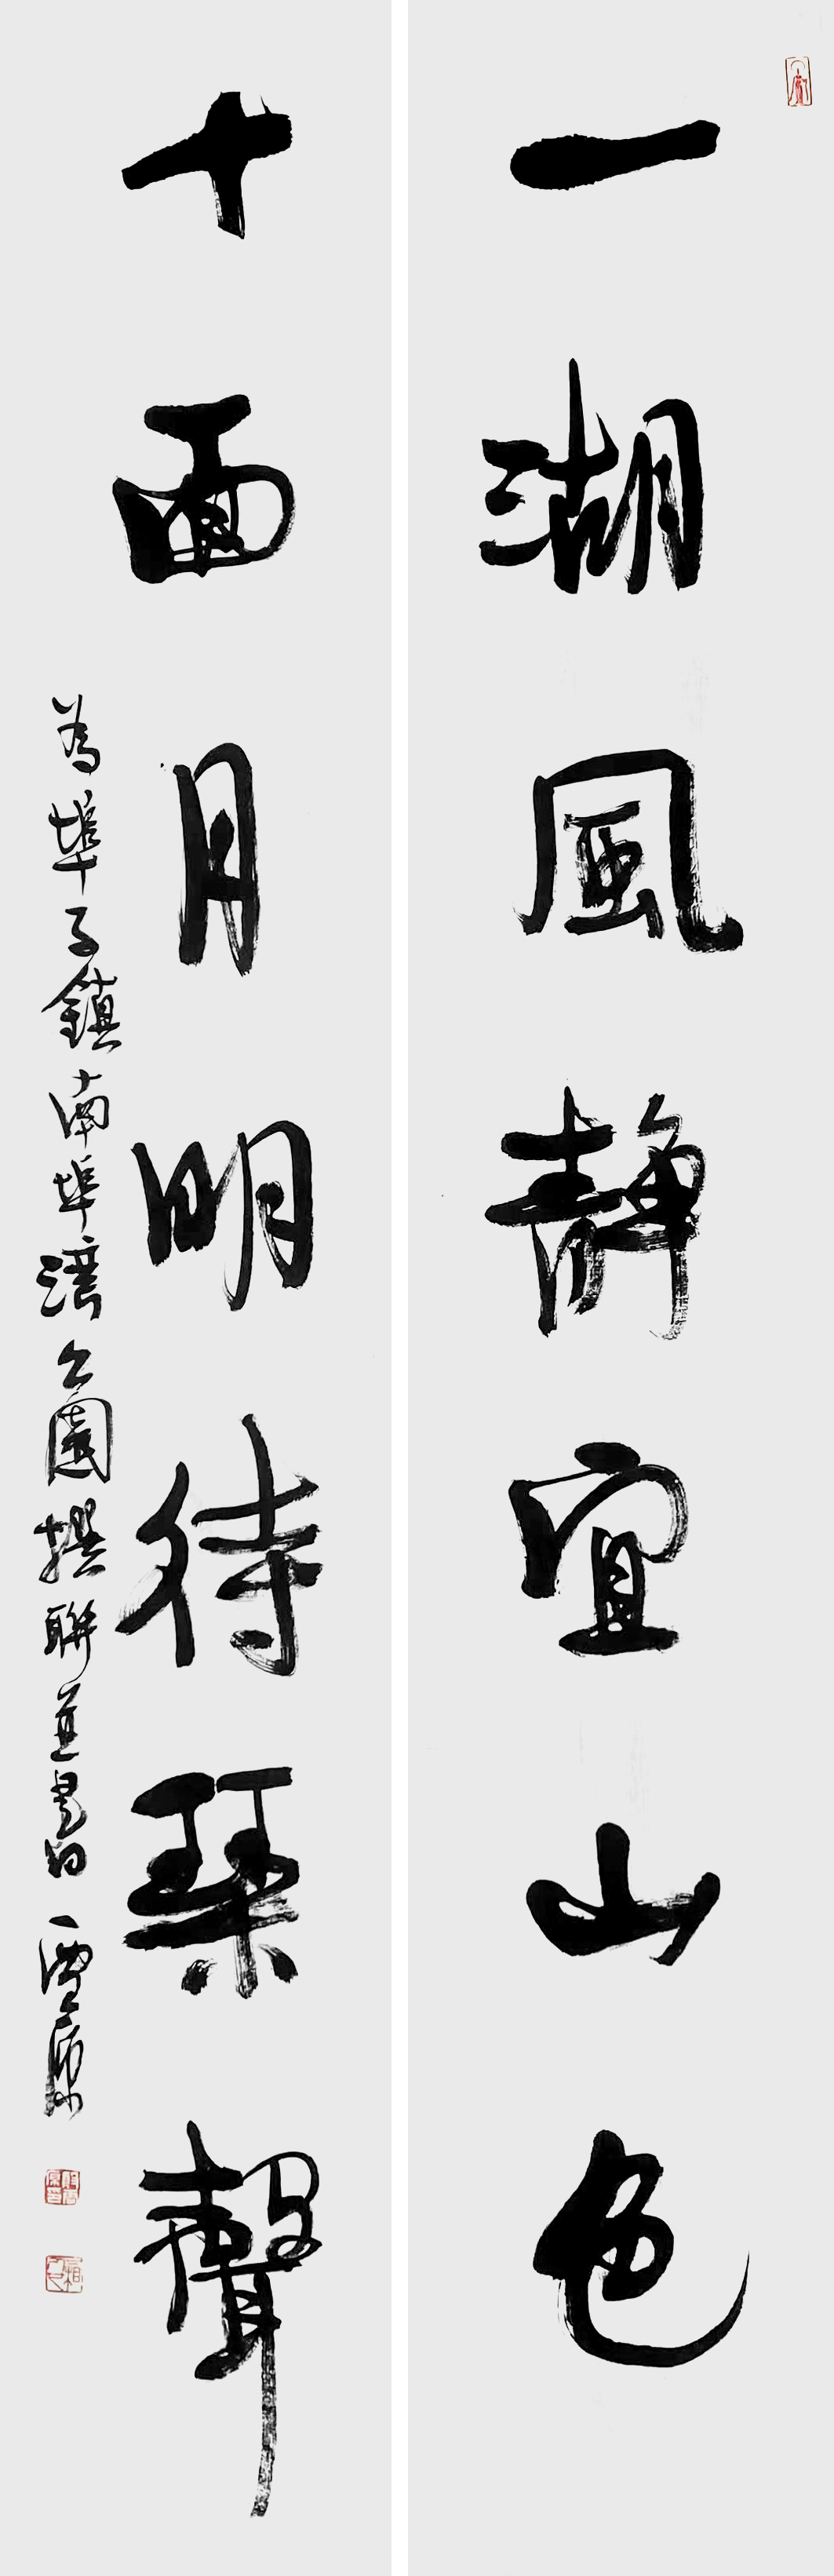 一湖風靜宜山色
十面月明待琴聲
為埠子鎮南埠灣公園撰聯並書